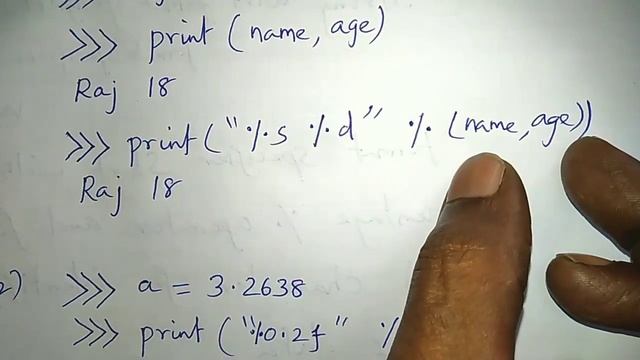 >>> print (name, age)
Raj 18
>>> print ("%s %d" % (name, age))
Raj 18
2) >>> a = 3.2638
>>> print ("%0.2f" %